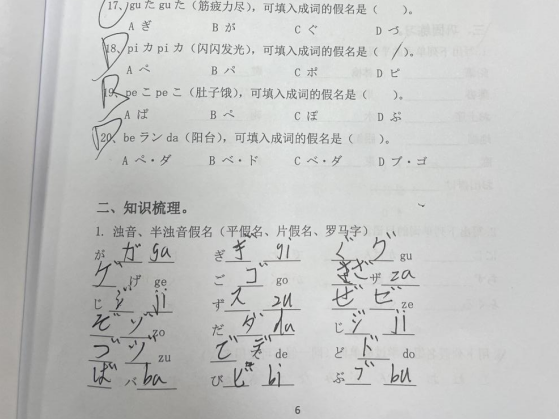 17、gu た gu た（筋疲力尽），可填入成词的假名是（ ）。
A ぎ B が C ぐ D づ
D 18、pi カ pi カ（闪闪发光），可填入成词的假名是（ ）。
A ペ B パ C ポ D ピ
B 19、pe こ pe こ（肚子饿），可填入成词的假名是（ ）。
A ぱ B ぺ C ぽ D ぷ
D 20、be ラン da（阳台），可填入成词的假名是（ ）。
A ペ・ダ B ベ・ド C ベ・ダ D ブ・ゴ
二、知识梳理。
1. 浊音、半浊音假名（平假名、片假名、罗马字）
が ガ ga ぎ ギ gi ぐ グ gu
ゲ げ ge ご ゴ go ざ ザ za
じ ジ ji ず ズ zu ぜ ゼ ze
ぞ ゾ zo だ ダ da じ ジ ji
づ ヅ zu で デ de ど ド do
ば バ ba び ビ bi ぶ ブ bu
6